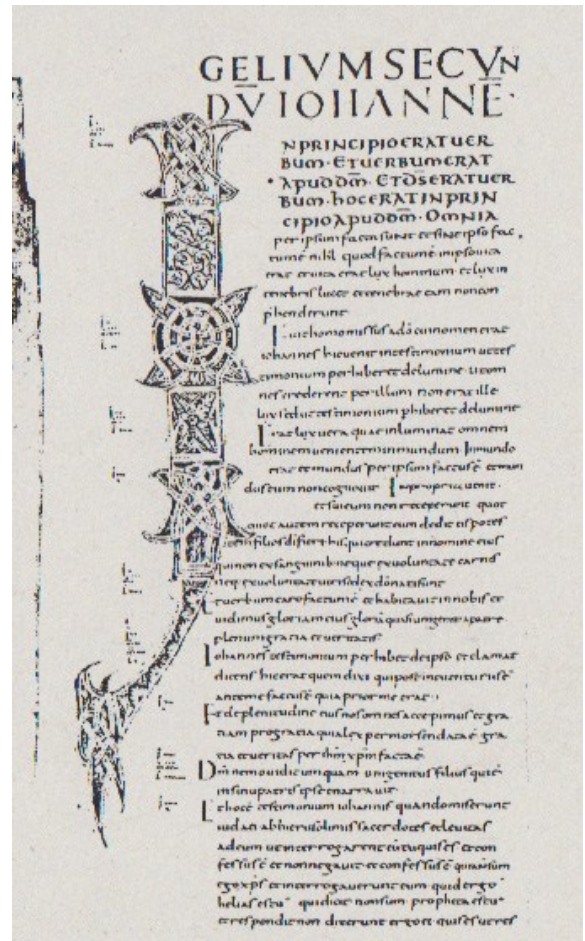 GELIVM SECVN
DV̅ IOHANNE̅·
NPRINCIPIO ERAT UER
BUM· ET UERBUM ERAT
APUD DM̅· ET DS̅ ERAT UER
BUM· HOC ERAT IN PRIN
CIPIO APUD DM̅· OMNIA
per ipsum facta sunt et sine ipso fac
tum e nihil quod factum e in ipso uita
erat et uita erat lux hominum et lux in
tenebris lucet et tenebrae eam non con
phenderunt
uit homo missus a do cui nomen erat
iohannes hic uenit in testimonium ut tes
timonium perhiberet de lumine ut om
nes crederent per illum non erat ille
lux sed ut testimonium phiberet de lumine
Erat lux uera quae inluminat omnem
hominem uenientem in mundum In mundo
erat et mundus per ipsum factus e et mun
dus eum non cognouit In propria uenit
et sui eum non receperunt quot
quot autem receperunt eum dedit eis potes
filios di fieri his qui credunt in nomine eius
qui non ex sanguinib neque ex uoluntate carnis
neq ex uoluntate uiri sed ex do nati sunt
Et uerbum caro factum e et habitauit in nobis et
uidimus gloriam eius gloria quasi unigeniti a patre
plenum gratia et ueritatis
Iohannes testimonium perhibet de ipso et clamat
dicens hic erat quem dixi qui post me uenturus e
ante me factus e quia prior me erat
Et de plenitudine eius nos omnes accepimus et gra
tiam pro gratia quia lex per mosen data e gra
tia et ueritas per ihm xpm facta e
Dm nemo uidit umquam unigenitus filius qui e
in sinu patris ipse enarrauit
Et hoc e testimonium iohannis quando miserunt
iudaei ab hierusolimis sacerdotes et leuitas
ad eum ut interrogarent eum tu quis es et con
fessus e et non negauit et confessus e quia non sum
ego xps et interrogauerunt eum quid ergo
helias es tu et dicit non sum propheta es tu
et respondit non dixerunt ergo ei quis es ut res